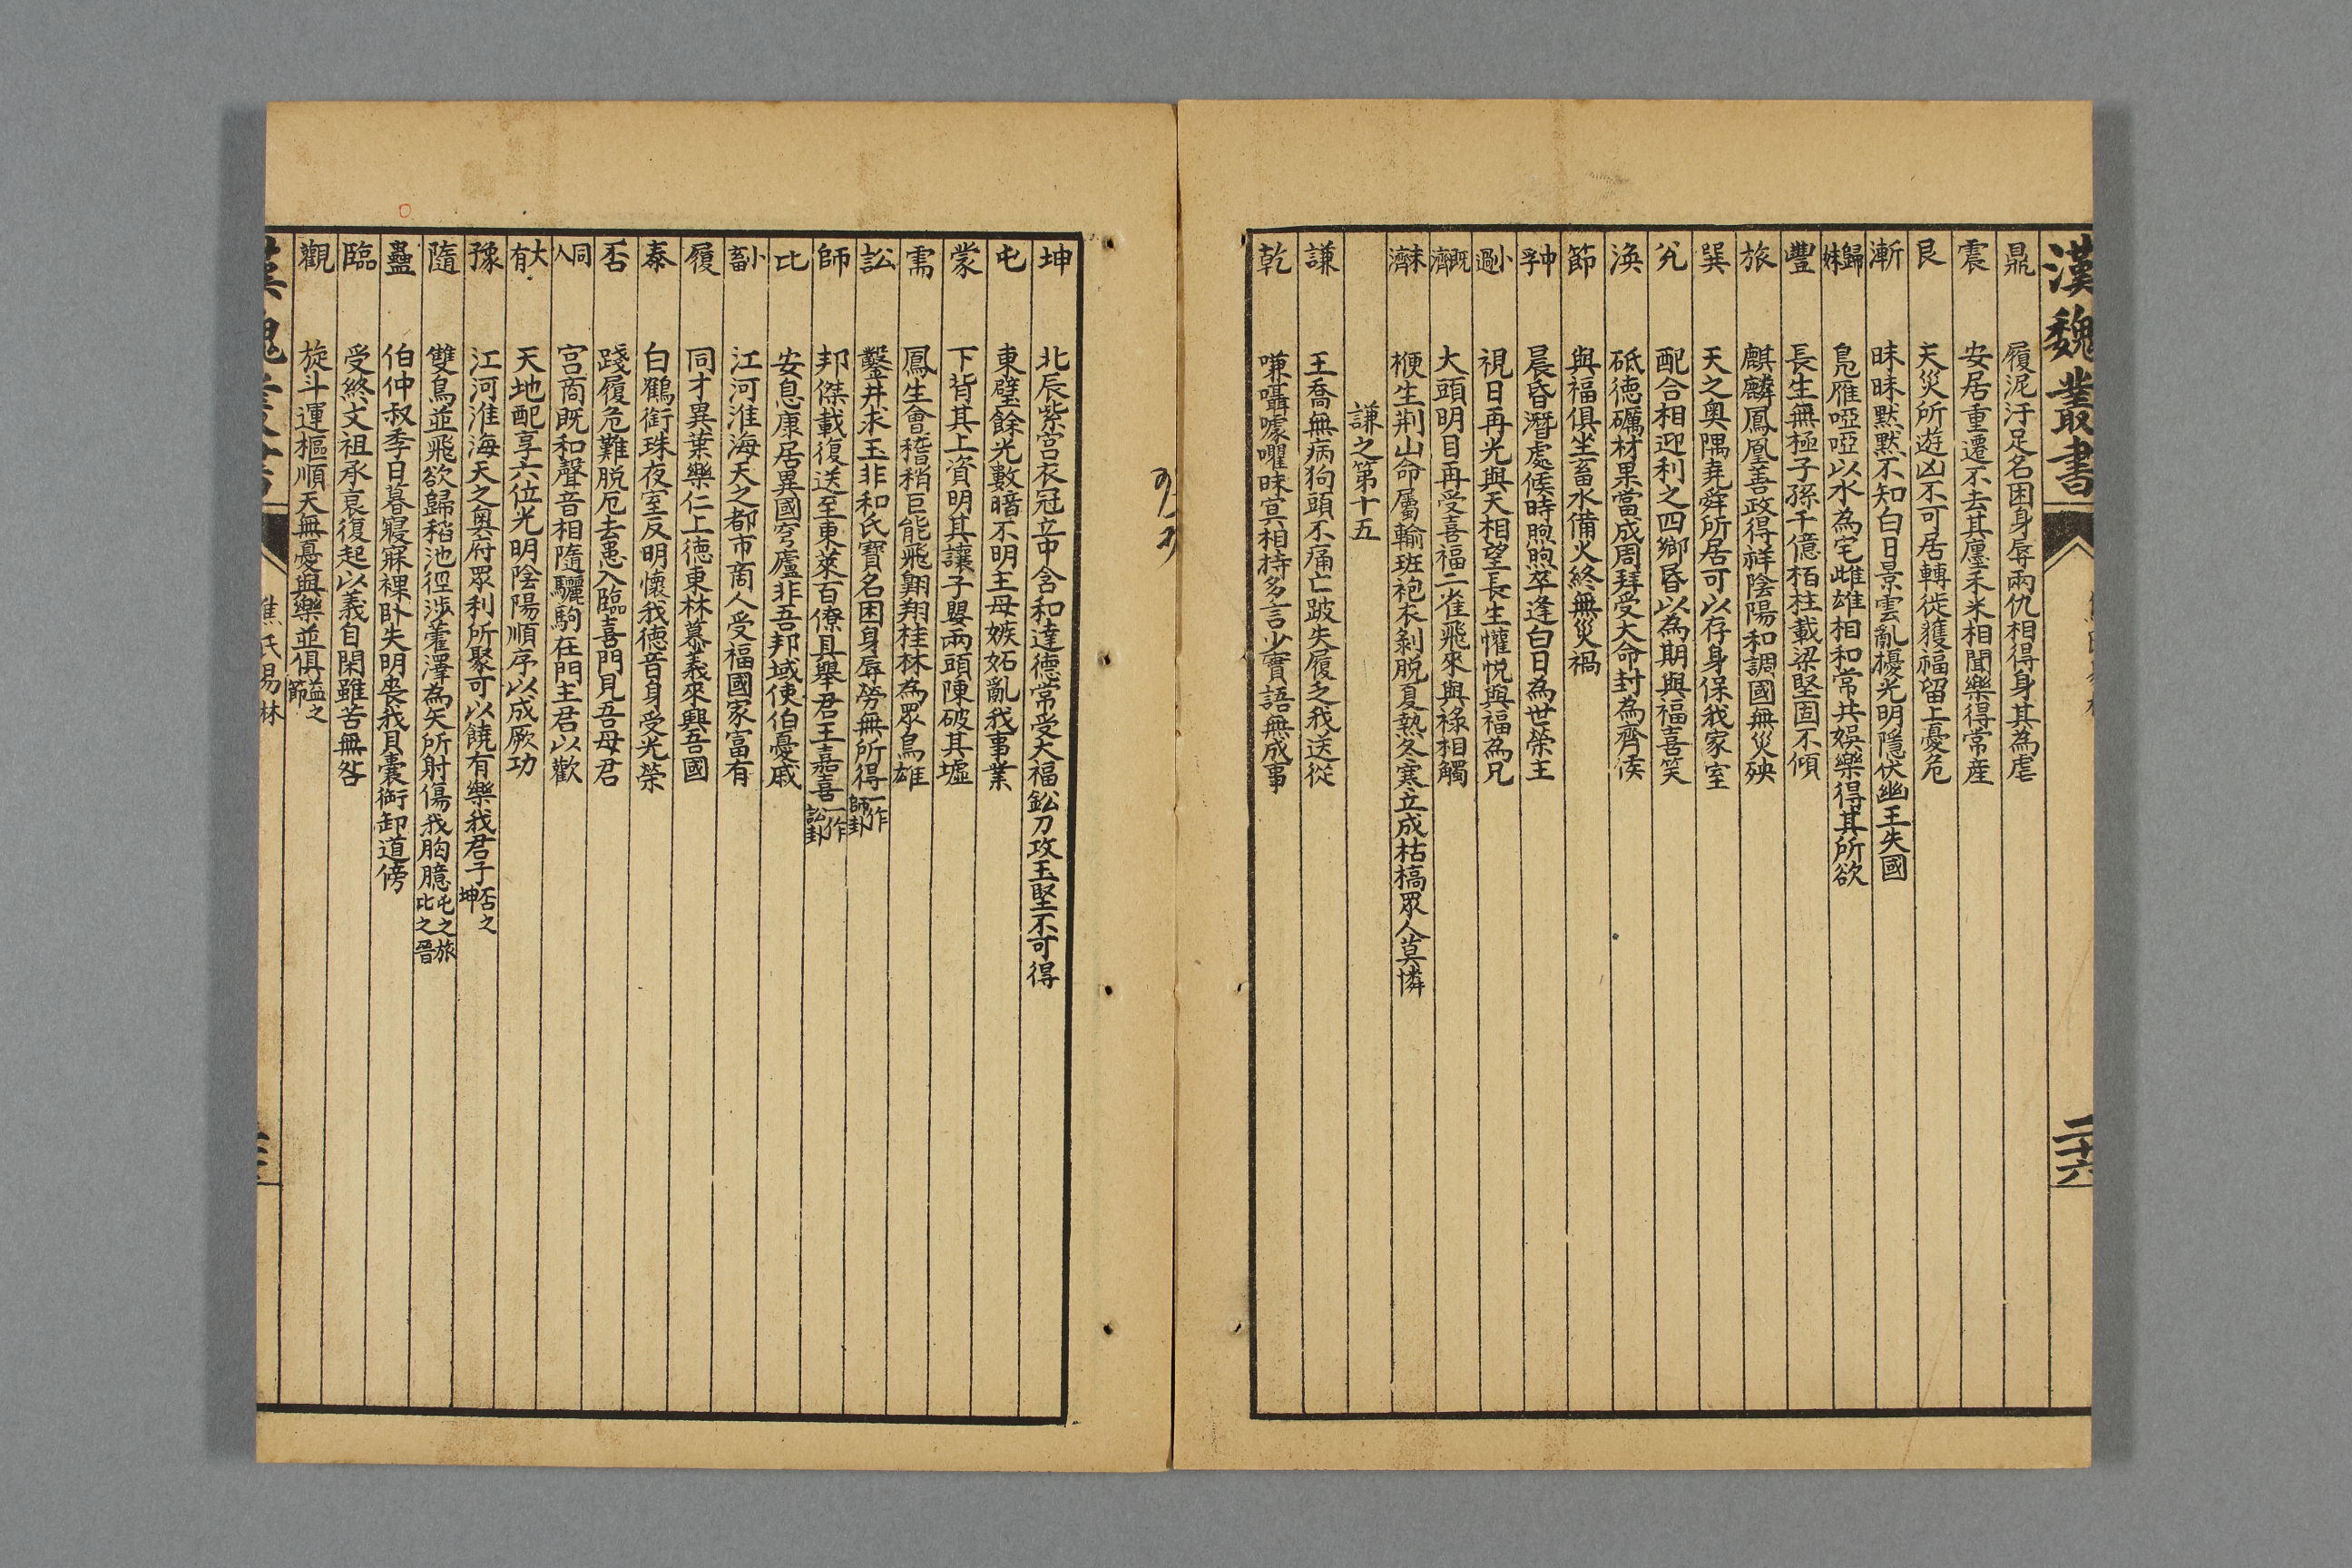 漢魏叢書
二十六
鼎 履泥汙足名困身辱兩仇相得身其為虐
震 安居重遷不去其廛禾米相聞樂得常産
艮 天災所遊凶不可居轉徙獲福留上憂危
漸 昧昧默默不知白日景雲亂擾光明隱伏幽王失國
歸妹 鳧雁啞啞以水為宅雌雄相和常共娛樂得其所欲
豐 長生無極子孫千億栢柱載梁堅固不傾
旅 麒麟鳳凰善政得祥陰陽和調國無災殃
巽 天之奥隅堯舜所居可以存身保我家室
兊 配合相迎利之四鄉昏以為期與福喜笑
渙 砥徳礪材果當成周拜受大命封為齊侯
節 與福俱坐畜水備火終無災禍
中孚 晨昏潛處候時煦煦卒逢白日為世榮主
小過 視日再光與天相望長生懽悦與福為兄
既濟 大頭明目再受喜福二雀飛來與祿相觸
未濟 梗生荆山命屬輸班袍衣剝脱夏熱冬寒立成枯槁眾人莫憐
謙之第十五
謙 王喬無病狗頭不痛亡跛失履乏我送從
乾 嗛囁噱嚾昧㝠相持多言少實語無成事
坤 北辰紫宫衣冠立中含和達德常受大福鈆刀攻玉堅不可得
屯 東壁餘光數暗不明主母嫉妬亂我事業
蒙 下背其上資明其讓子嬰兩頭陳破其墟
需 鳳生會稽稍巨能飛翺翔桂林為眾鳥雄
訟 鑿井求玉非和氏寶名困身辱勞無所得一作師卦
師 邦傑載復送至東萊百僚具舉君王嘉喜一作訟卦
比 安息康居異國穹廬非吾邦域使伯憂戚
小畜 江河淮海天之都市商人受福國家富有
履 同才異葉樂仁上德東林慕義來興吾國
泰 白鶴銜珠夜室反明懷我德音身受光榮
否 踐履危難脱厄去患入臨喜門見吾母君
同人 宫商既和聲音相隨驪駒在門主君以歡
大有 天地配享六位光明陰陽順序以成厥功
豫 江河淮海天之奥府眾利所聚可以饒有樂我君子否之坤
隨 雙鳥並飛欲歸稻池徑涉雚澤為矢所射傷我胷臆屯之旅比之晉
蠱 伯仲叔季日暮寢寐裸卧失明喪我貝囊衘卸道傍
臨 受終文祖承衰復起以義自閑雖苦無咎
觀 旋斗運樞順天無憂與樂並俱益之節
焦氏易林